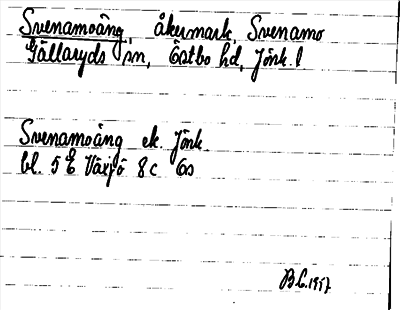 Svenamoäng åkermark, Svenamo
Gällaryds sn, Östbo hd, Jönk. l
Svenamoäng ek. Jönk.
bl. 5 E Växjö 8 c
B L. 1957